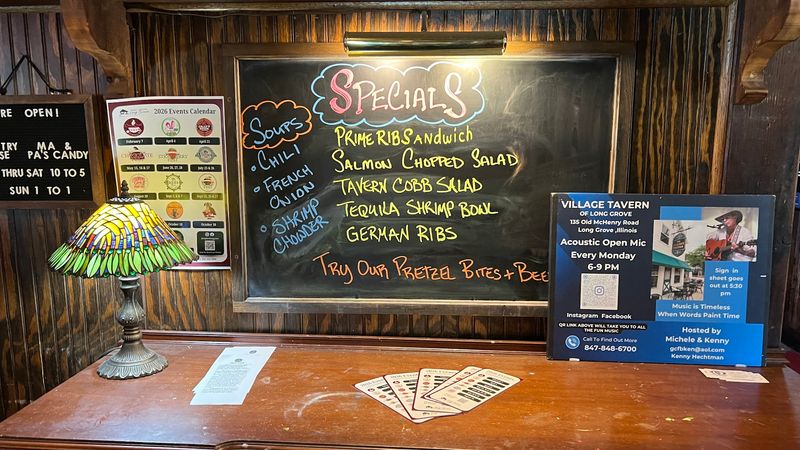 RE OPEN!
TRY MA &
SE PA'S CANDY
THRU SAT 10 TO 5
SUN 1 TO 1
2026 Events Calendar
SPECIALS
SOUPS
• CHILI
• FRENCH
ONION
• SHRIMP
CHOWDER
PRIME RIB SANDWICH
SALMON CHOPPED SALAD
TAVERN COBB SALAD
TEQUILA SHRIMP BOWL
GERMAN RIBS
TRY OUR PRETZEL BITES + BEE
VILLAGE TAVERN
OF LONG GROVE
135 Old McHenry Road
Long Grove ,Illinois
Acoustic Open Mic
Every Monday
6-9 PM
Instagram Facebook
QR LINK ABOVE WILL TAKE YOU TO ALL
THE FUN MUSIC
Call To Find Out More
847-848-6700
Sign in
sheet goes
out at 5:30
pm
Music is Timeless
When Words Paint Time
Hosted by
Michele & Kenny
gcfbken@aol.com
Kenny Hechtman